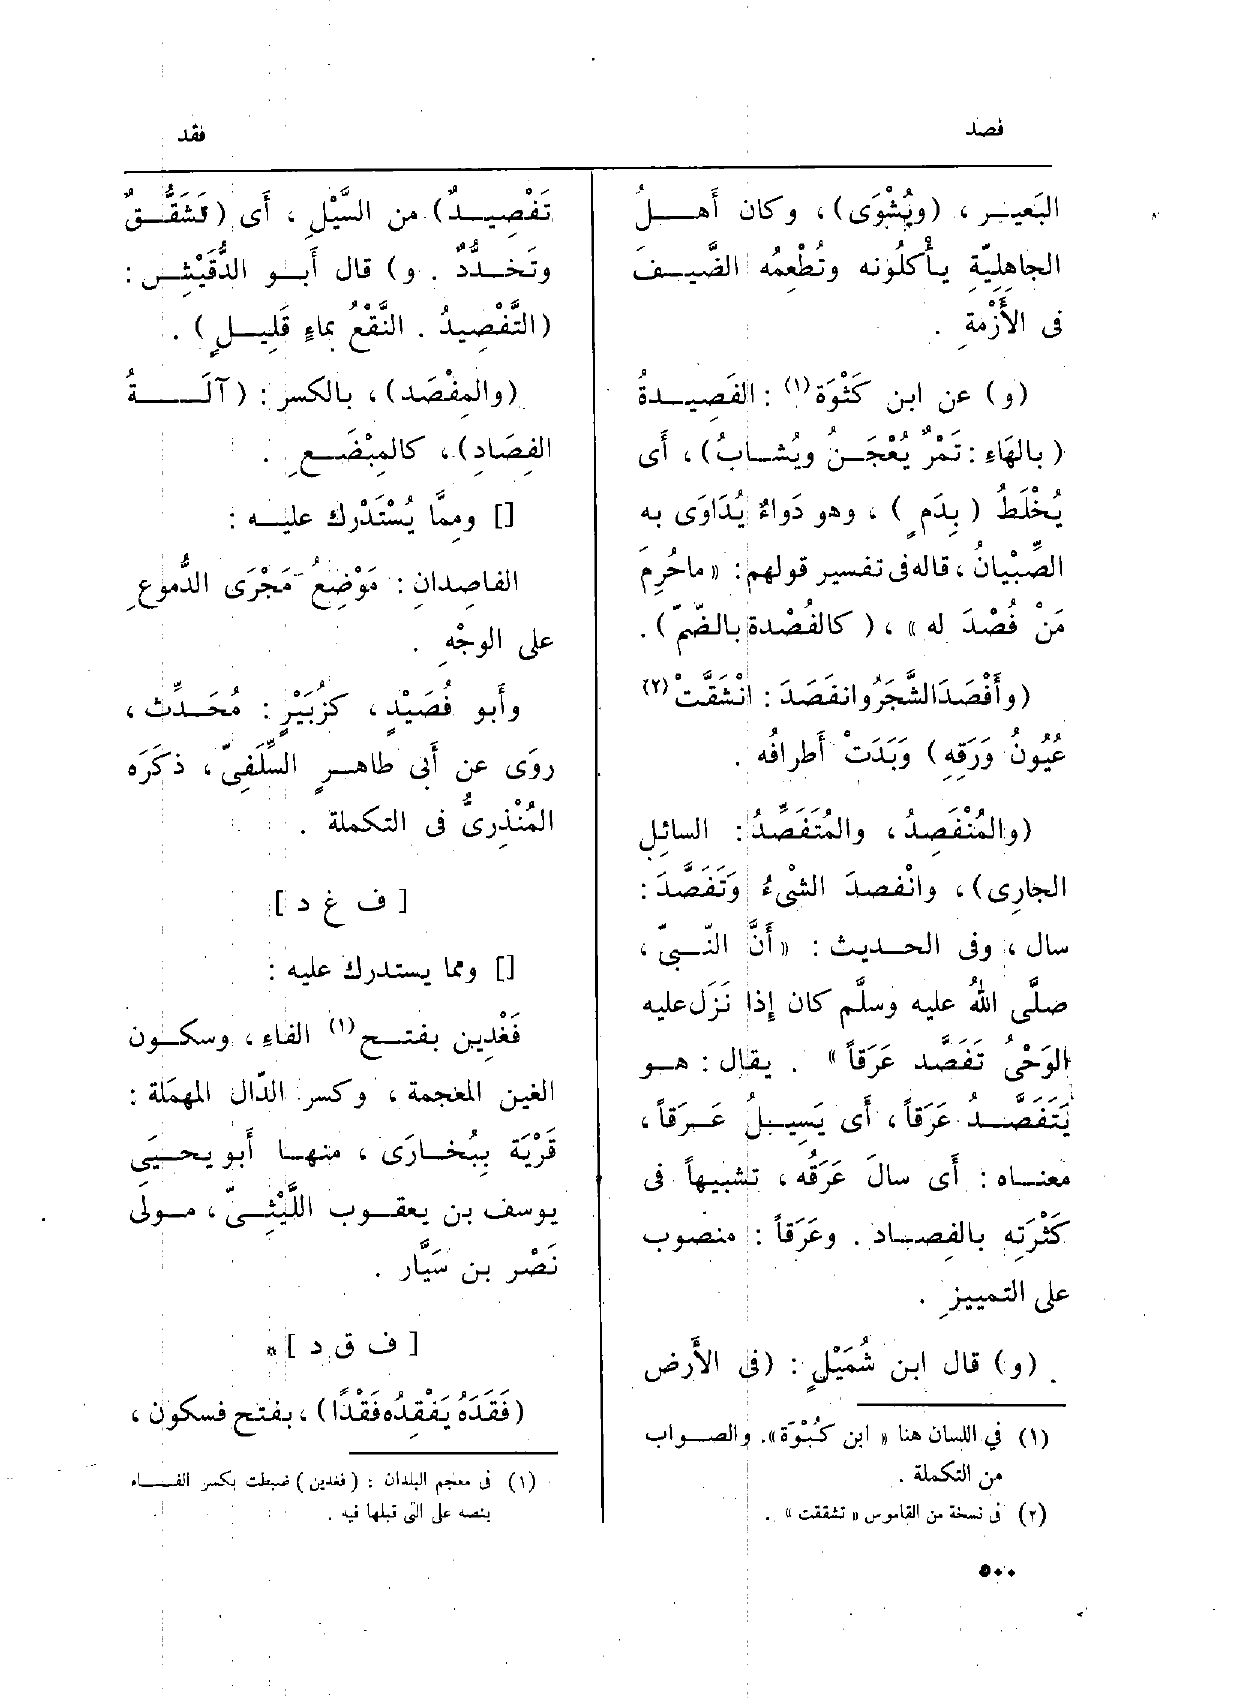 فصد
فقد
البَعيـر ، (ويُشْوَى) ، وكان أَهـلُ
الجاهليّة يأْكلُونه وتُطعِمُه الضَّيـفَ
فى الأَزْمةِ .
(و) عن ابن كَثْوَة(١) : الفَصِيدةُ
(بالهَاءِ : تَمْرٌ يُعْجَـنُ ويُشـابُ) ، أَى
يُخْلَطُ (بِدَمٍ ) ، وهو دَواءٌ يُدَاوَى به
الصِّبْيانُ ، قاله فى تفسير قولهم : «ماحُرِمَ
مَنْ فُصْدَ له » ، (كالفُصْدة بالضّمّ) .
(وأَفْصَدَ الشَّجَرُ وانفَصَدَ : انْشَقَّتْ(٢)
عُيُونُ وَرَقِه) وَبَدَتْ أَطرافُه .
(والمُنْفَصِدُ ، والمُتَفَصِّدُ : السائِل
الجارِى) ، وانْفصدَ الشىْءُ وَتَفَصَّدَ :
سال ، وفى الحديث : «أَنَّ النّبـىّ ،
صلَّى اللهُ عليه وسلَّم كان إِذا نَزَل عليه
الوَحْىُ تَفَصَّد عَرَقاً» . يقال : هـو
يَتَفَصَّـدُ عَرَقاً ، أَى يَسِيـلُ عَـرَقاً ،
معنـاه : أَى سالَ عَرَقُه ، تشبيهاً فى
كَثْرَتِه بالفِصـاد . وعَرَقاً : منصوب
على التمييزِ .
(و) قال ابن شُمَيْلٍ : (فى الأَرض
(١) في اللسان هنا «ابن كُبْوَة». والصـواب
من التكملة .
(٢) فى نسخة من القاموس «تشققت» .
تَفْصِيـدٌ) من السَّيْلِ ، أَى (تَشَقُّـقٌ
وتَخـدُّدٌ . و) قال أَبـو الدُّقَيْشِ :
(التَّفْصِيدُ . النَّقْعُ بماءٍ قَلِيـلٍ) .
(والمِفْصَد) ، بالكسر : (آلَـــةُ
الفِصَادِ) ، كالمِبْضَـعِ .
[] وممَّا يُسْتَدْرك عليـه :
الفاصِدانِ : مَوْضِعُ مَجْرَى الدُّموعِ
على الوجْهِ .
وأَبو فُصَيْدٍ ، كزُبَيْرٍ : مُحَـدِّث ،
روَى عن أَبى طاهـرٍ السِّلَفِىّ ، ذكَرَه
المُنْذِرىُّ فى التكملة .
[ ف غ د ]
[] ومما يستدرك عليه :
فَغْدِين بفتـح(١) الفاءِ ، وسكـون
الغين المعجمة ، وكسر الدّال المهمَلة :
قَرْيَة ببُخـارَى ، منهـا أَبو يحيَـى
يوسف بن يعقـوب اللَّيْثـىّ ، مـولى
نَصْر بن سَيَّار .
[ ف ق د ] *
(فَقَدَهُ يَفْقِدُه فَقْدًا) ، بفتح فسكون ،
(١) فى معجم البلدان : (فغدين) ضبطت بكسر الفـاء
بنصه على التى قبلها فيه .
٥٠٠